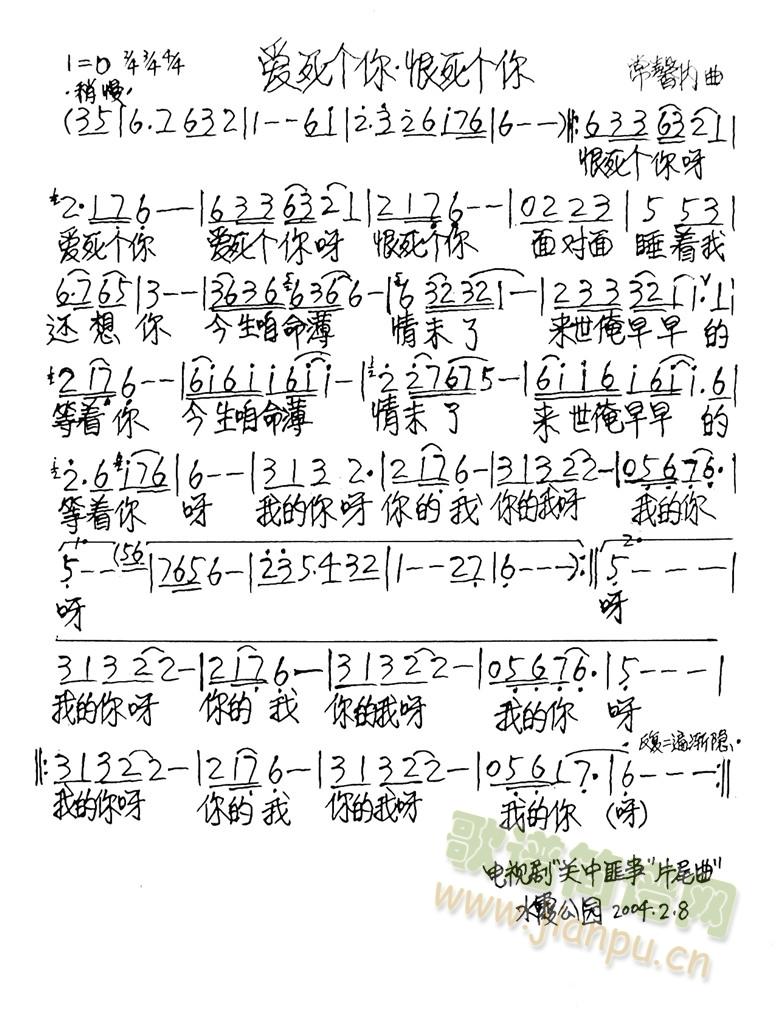 爱死个你·恨死个你
1=D 2/4 3/4 4/4
·稍慢·
常馨内 曲
(35|6.7 632|1--61|2.3 26176|6---)‖:633 6321|
恨死个你呀
2·176--|633 6321|2176--|0223|5 53|
爱死个你 爱死个你呀 恨死个你 面对面 睡着我
6·765|3--|3636 6366-|6 32321-|2333211·1|
还想你 今生咱命薄 情未了 来世俺早早的
2176--|6161161 1-|2 27675-|6116161.6|
等着你 今生咱命薄 情未了 来世俺早早的
2.6176|6--|3132.|2176-|31322-|05676·|
等着你 呀 我的你呀 你的我 你的我呀 我的你
1. 2.
5--(56|7656-|235.432|1--27|6---):‖5---|
呀 呀
313 22-|2176-|31322-|05676·|5---|
我的你呀 你的我 你的我呀 我的你 呀
反复二遍渐隐.
‖:31322-|2176-|31322-|05617·|6---:‖
我的你呀 你的我 你的我呀 我的你 (呀)
电视剧"关中匪事"片尾曲"
水霞公园 2004.2.8
歌谱简谱网
www.jianpu.cn